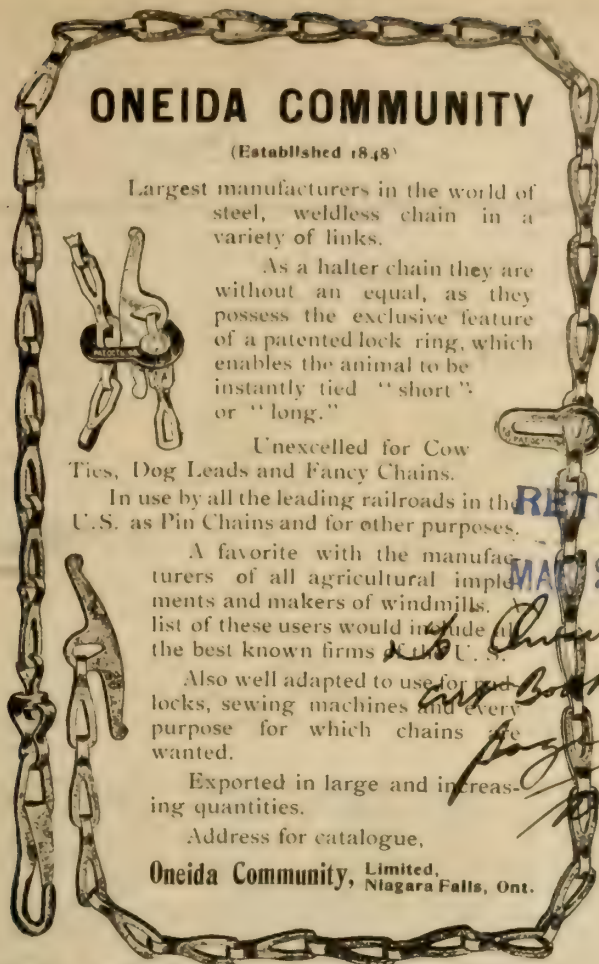 ONEIDA COMMUNITY
(Established 1848)
Largest manufacturers in the world of
steel, weldless chain in a
variety of links.
As a halter chain they are
without an equal, as they
possess the exclusive feature
of a patented lock ring, which
enables the animal to be
instantly tied "short"
or "long."
Unexcelled for Cow
Ties, Dog Leads and Fancy Chains.
In use by all the leading railroads in the
U.S. as Pin Chains and for other purposes.
A favorite with the manufac-
turers of all agricultural imple-
ments and makers of windmills. A
list of these users would include all
the best known firms of the U. S.
Also well adapted to use for pad-
locks, sewing machines and every
purpose for which chains are
wanted.
Exported in large and increas-
ing quantities.
Address for catalogue,
Oneida Community, Limited,
Niagara Falls, Ont.
RET